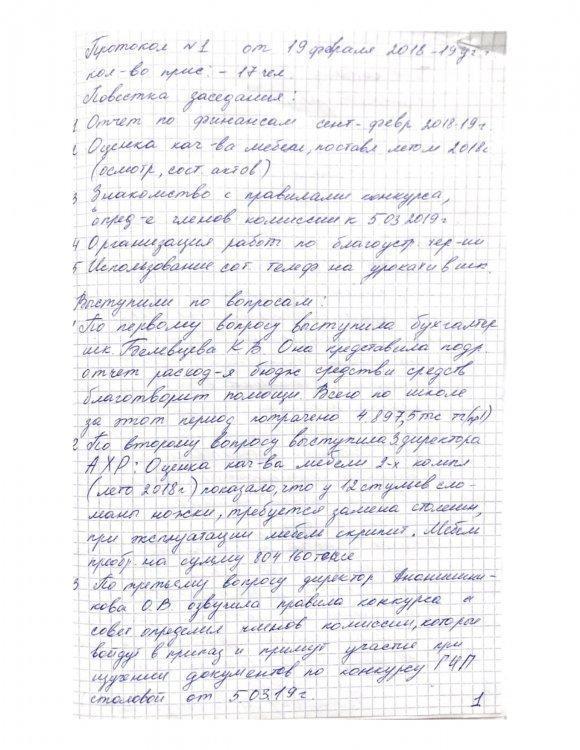 Протокол №1 от 19 февраля 2018-19 уч. г.
кол-во прис. - 17 чел.
Повестка заседания:
1 Отчет по финансам сент-февр 2018-19г.
2 Оценка кач-ва мебели, поставл летом 2018г
(осмотр, сост. актов)
3 Знакомство с правилами конкурса,
опред-е членов комиссии к 5 03 2019г.
4 Организация работ по благоустр. тер-ии
5 Использование сот. телеф на уроках и в шк.
Выступили по вопросам:
1 По первому вопросу выступила бухгалтер
шк. Белевцева К.В. Она представила подр.
отчет расход-я бюдж средств и средств
благотворит помощи. Всего по школе
за этот период потрачено 4 897,5 тыс тг (пр1)
2 По второму вопросу выступила З директора
АХР: Оценка кач-ва мебели 2-х компл
(лето 2018г) показало, что у 12 стульев сло-
маны ножки, требуется замена столешн,
при эксплуатации мебель скрипит. Мебель
преобр. на сумму 804 160 тенге
3 По третьему вопросу директор
О.В озвучила правила конкурса и
совет определил членов комиссии, которые
войдут в приказ и примут участие при
изучении документов по конкурсу ГЧП
столовой от 5.03.19г.
1